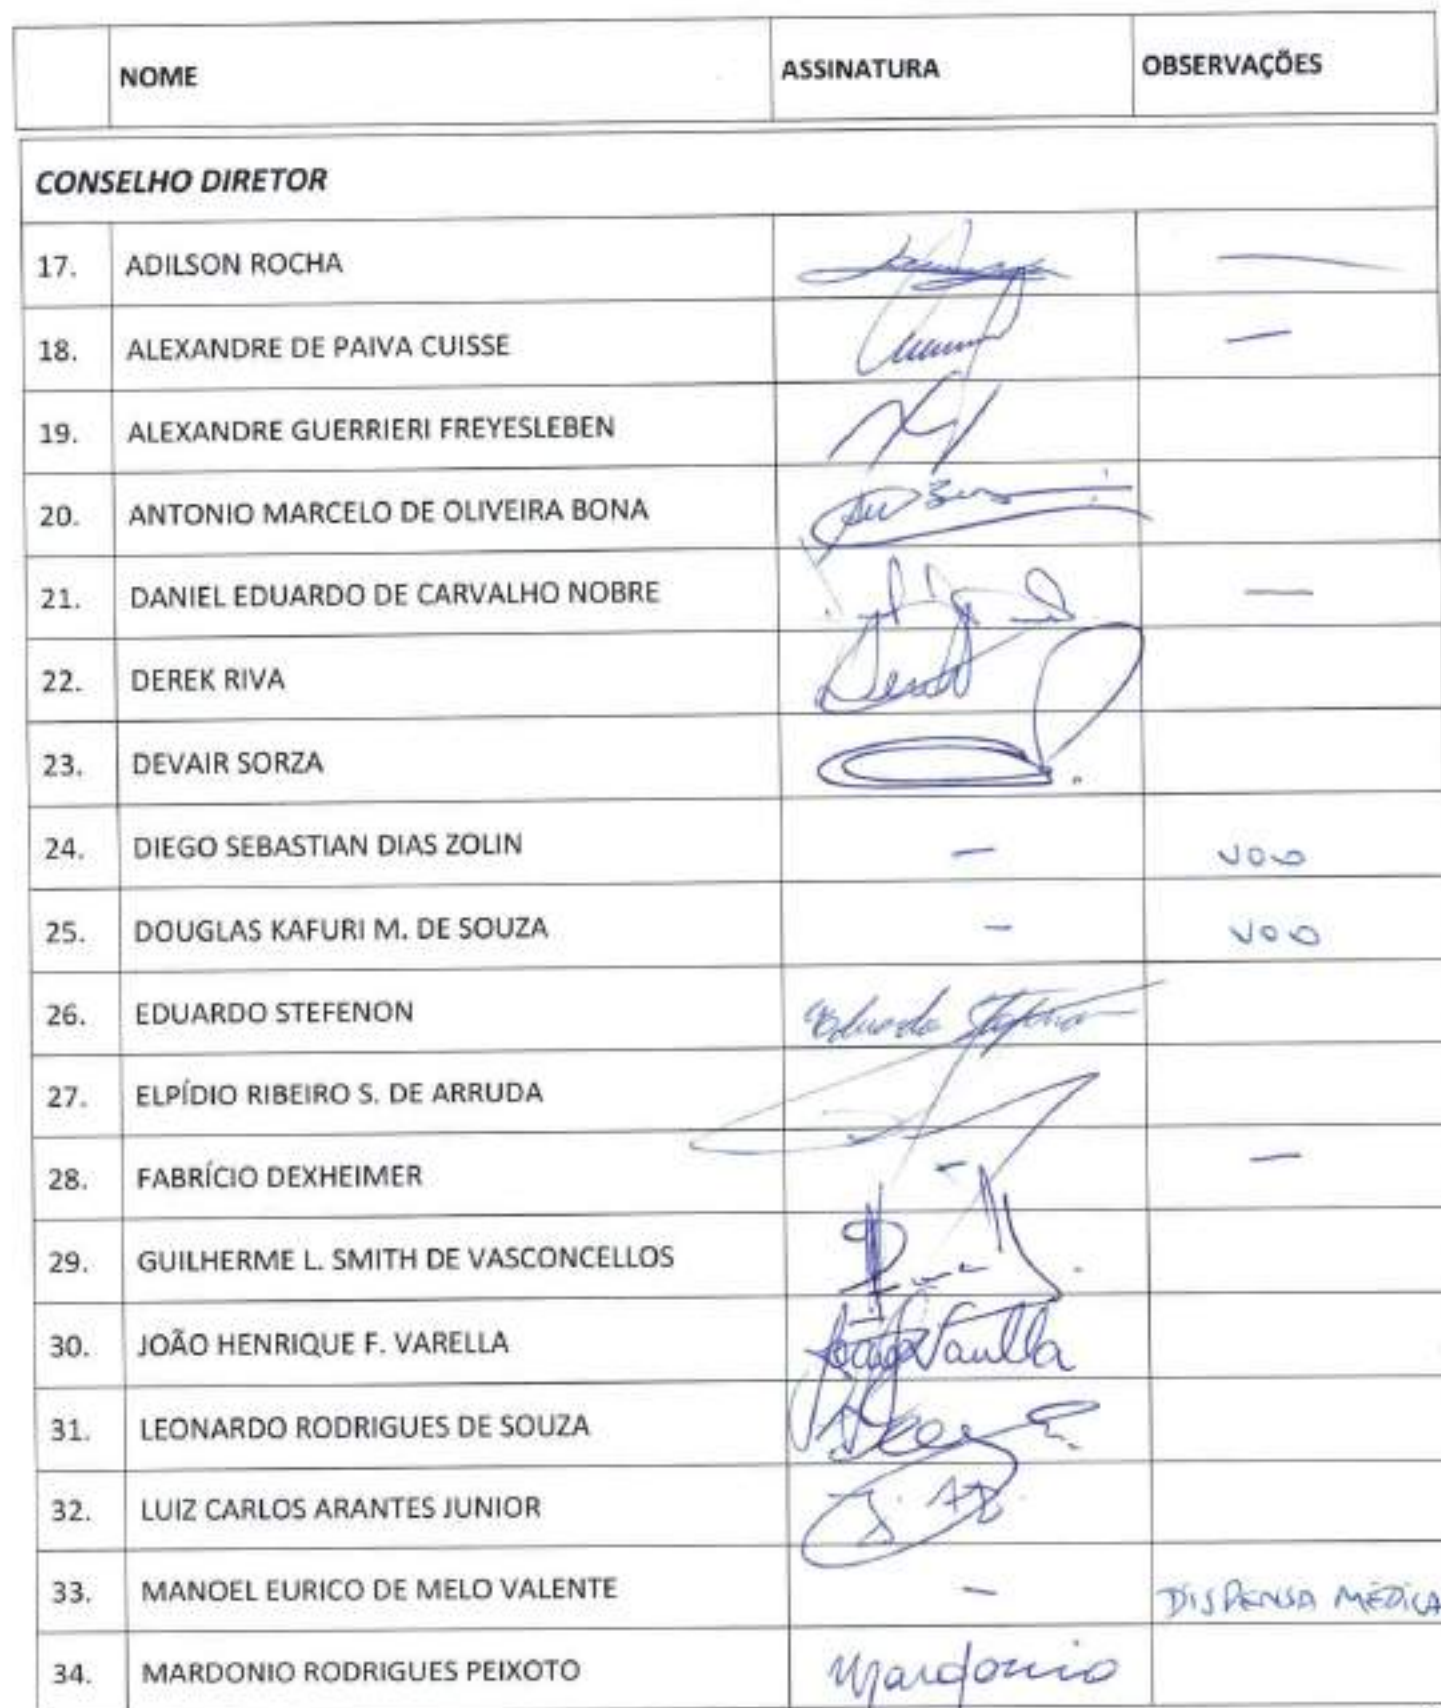 NOME ASSINATURA OBSERVAÇÕES
CONSELHO DIRETOR
17. ADILSON ROCHA —
18. ALEXANDRE DE PAIVA CUISSE —
19. ALEXANDRE GUERRIERI FREYESLEBEN
20. ANTONIO MARCELO DE OLIVEIRA BONA
21. DANIEL EDUARDO DE CARVALHO NOBRE —
22. DEREK RIVA
23. DEVAIR SORZA
24. DIEGO SEBASTIAN DIAS ZOLIN — VOO
25. DOUGLAS KAFURI M. DE SOUZA — VOO
26. EDUARDO STEFENON Eduardo Stefenon
27. ELPÍDIO RIBEIRO S. DE ARRUDA
28. FABRÍCIO DEXHEIMER — —
29. GUILHERME L. SMITH DE VASCONCELLOS
30. JOÃO HENRIQUE F. VARELLA João Varella
31. LEONARDO RODRIGUES DE SOUZA
32. LUIZ CARLOS ARANTES JUNIOR
33. MANOEL EURICO DE MELO VALENTE — DISPENSA MÉDICA
34. MARDONIO RODRIGUES PEIXOTO Mardonio